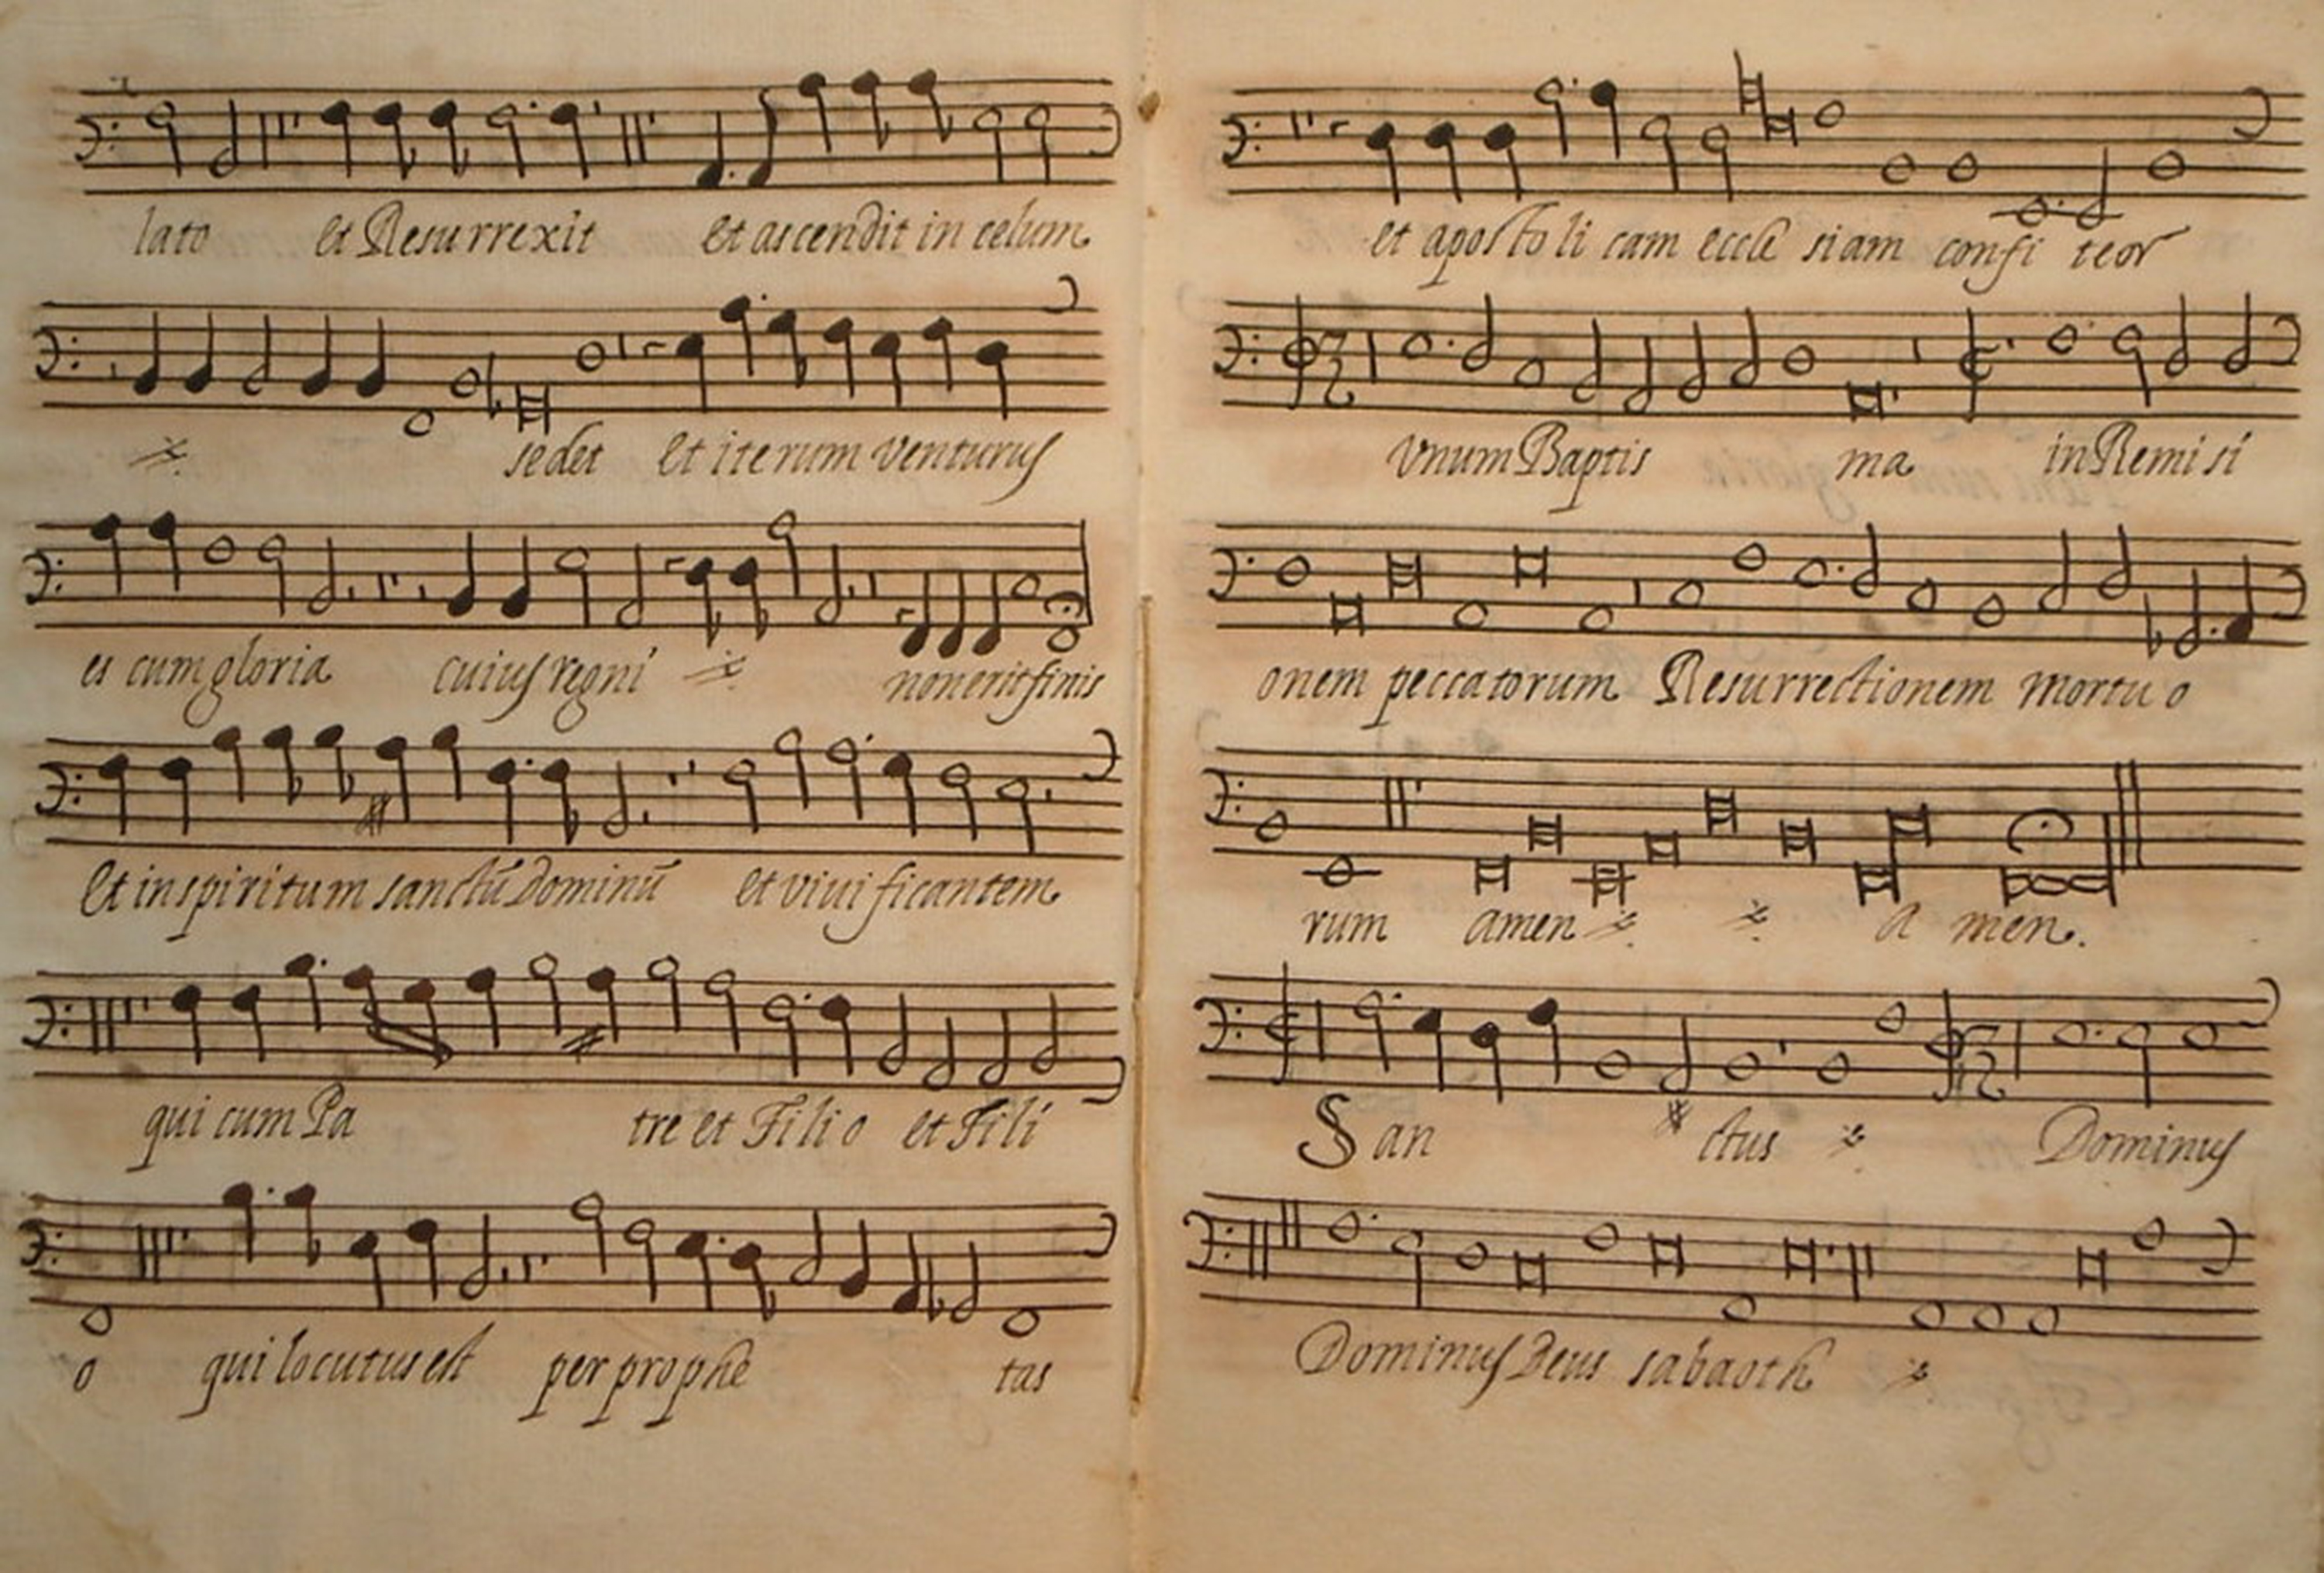 lato et Resurrexit et ascendit in celum
sedet et iterum venturus
es cum gloria cuius regni non erit finis
Et in spiritum sanctū Dominū et viui ficantem
qui cum Pa tre et Filio et Fili
o qui locutus est per prophe tas
et aposto li cam eccle siam confi teor
vnum Baptis ma in Remisi
onem peccatorum Resurrectionem mortu o
rum amen a men.
San ctus Dominus
Dominus Deus sabaoth